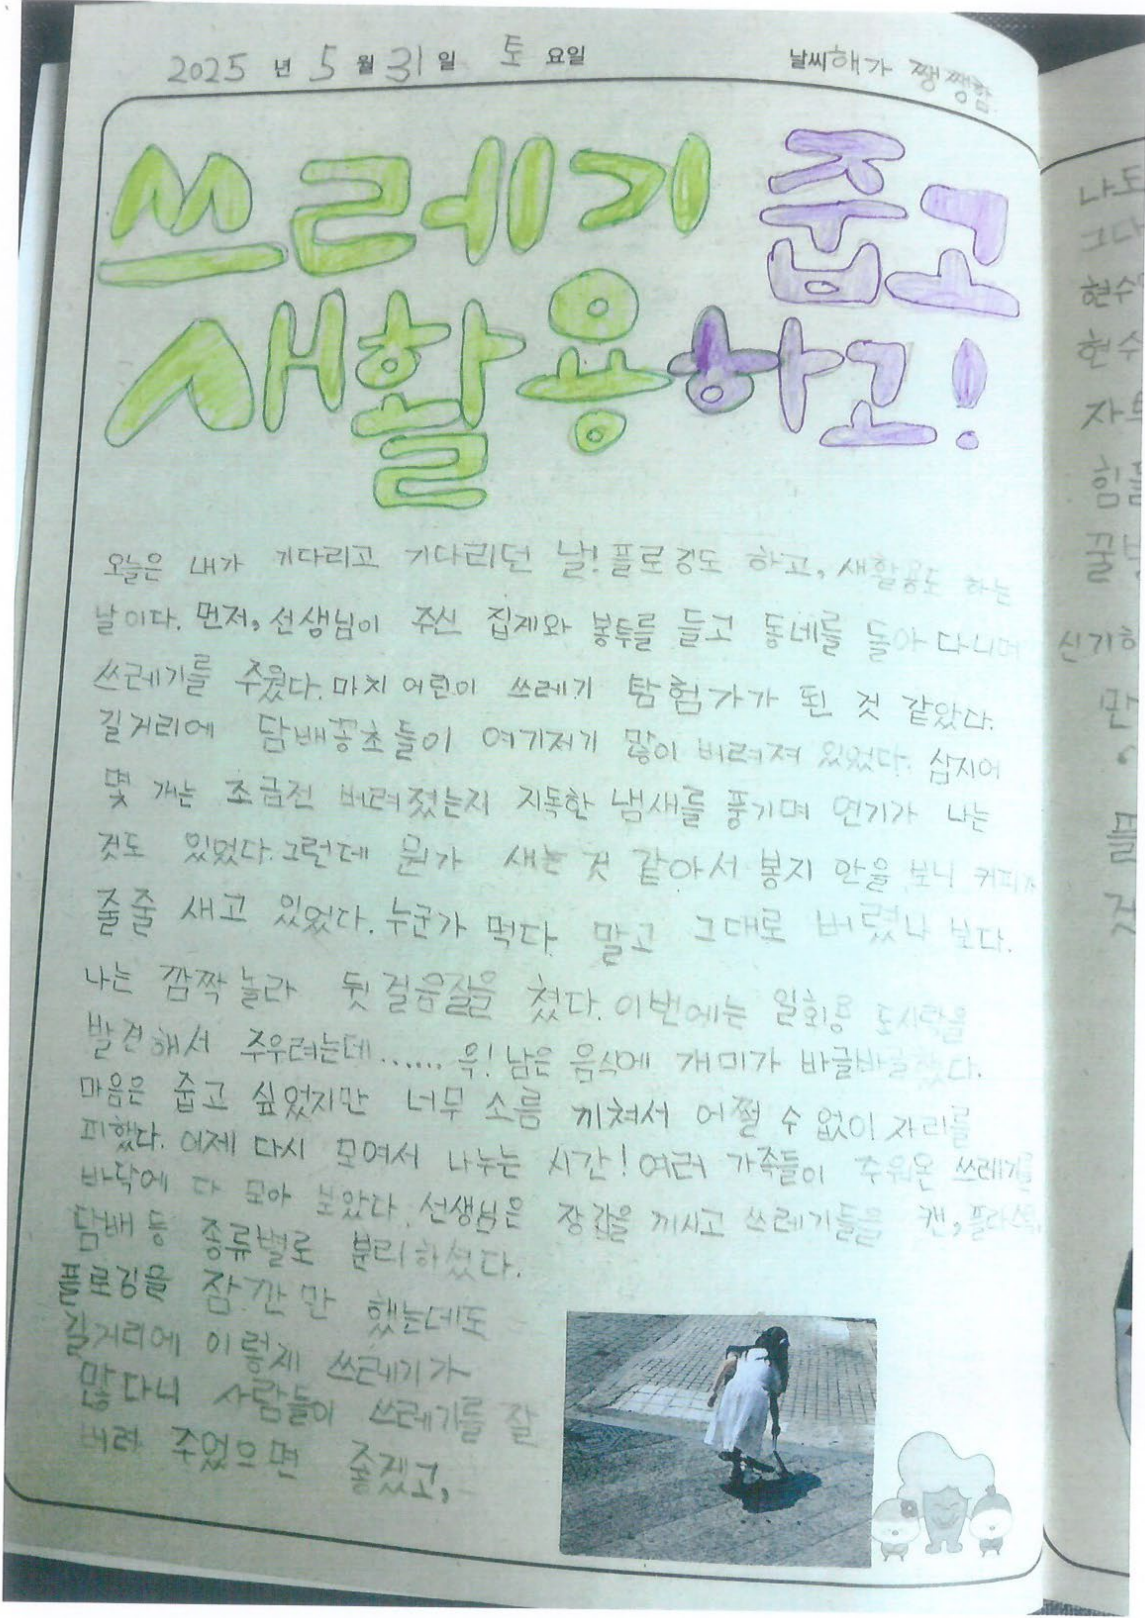 2025 년 5 월 31 일 토 요일 날씨 해가 쨍쨍함
쓰레기 줍고
새활용하고!
오늘은 내가 기다리고 기다리던 날! 플로깅도 하고, 새활용도 하는
날이다. 먼저, 선생님이 주신 집게와 봉투를 들고 동네를 돌아 다니며
쓰레기를 주웠다. 마치 어린이 쓰레기 탐험가가 된 것 같았다.
길거리에 담배꽁초들이 여기저기 많이 버려져 있었다. 삼지어
몇 개는 조금전 버려졌는지 지독한 냄새를 풍기며 연기가 나는
것도 있었다. 그런데 뭔가 새는 것 같아서 봉지 안을 보니 커피가
줄줄 새고 있었다. 누군가 먹다 말고 그대로 버렸나 보다.
나는 깜짝 놀라 뒷걸음질을 쳤다. 이번에는 일회용 도시락을
발견해서 주우려는데...... 윽! 남은 음식에 개미가 바글바글했다.
마음은 줍고 싶었지만 너무 소름 끼쳐서 어쩔 수 없이 자리를
피했다. 이제 다시 모여서 나누는 시간! 여러 가족들이 주워온 쓰레기를
바닥에 다 모아 보았다. 선생님은 장갑을 끼시고 쓰레기들을 캔, 플라스틱,
담배 등 종류별로 분리하셨다.
플로깅을 잠깐만 했는데도
길거리에 이렇게 쓰레기가
많다니 사람들이 쓰레기를 잘
버려 주었으면 좋겠고,
나도
현수
현수
신기하